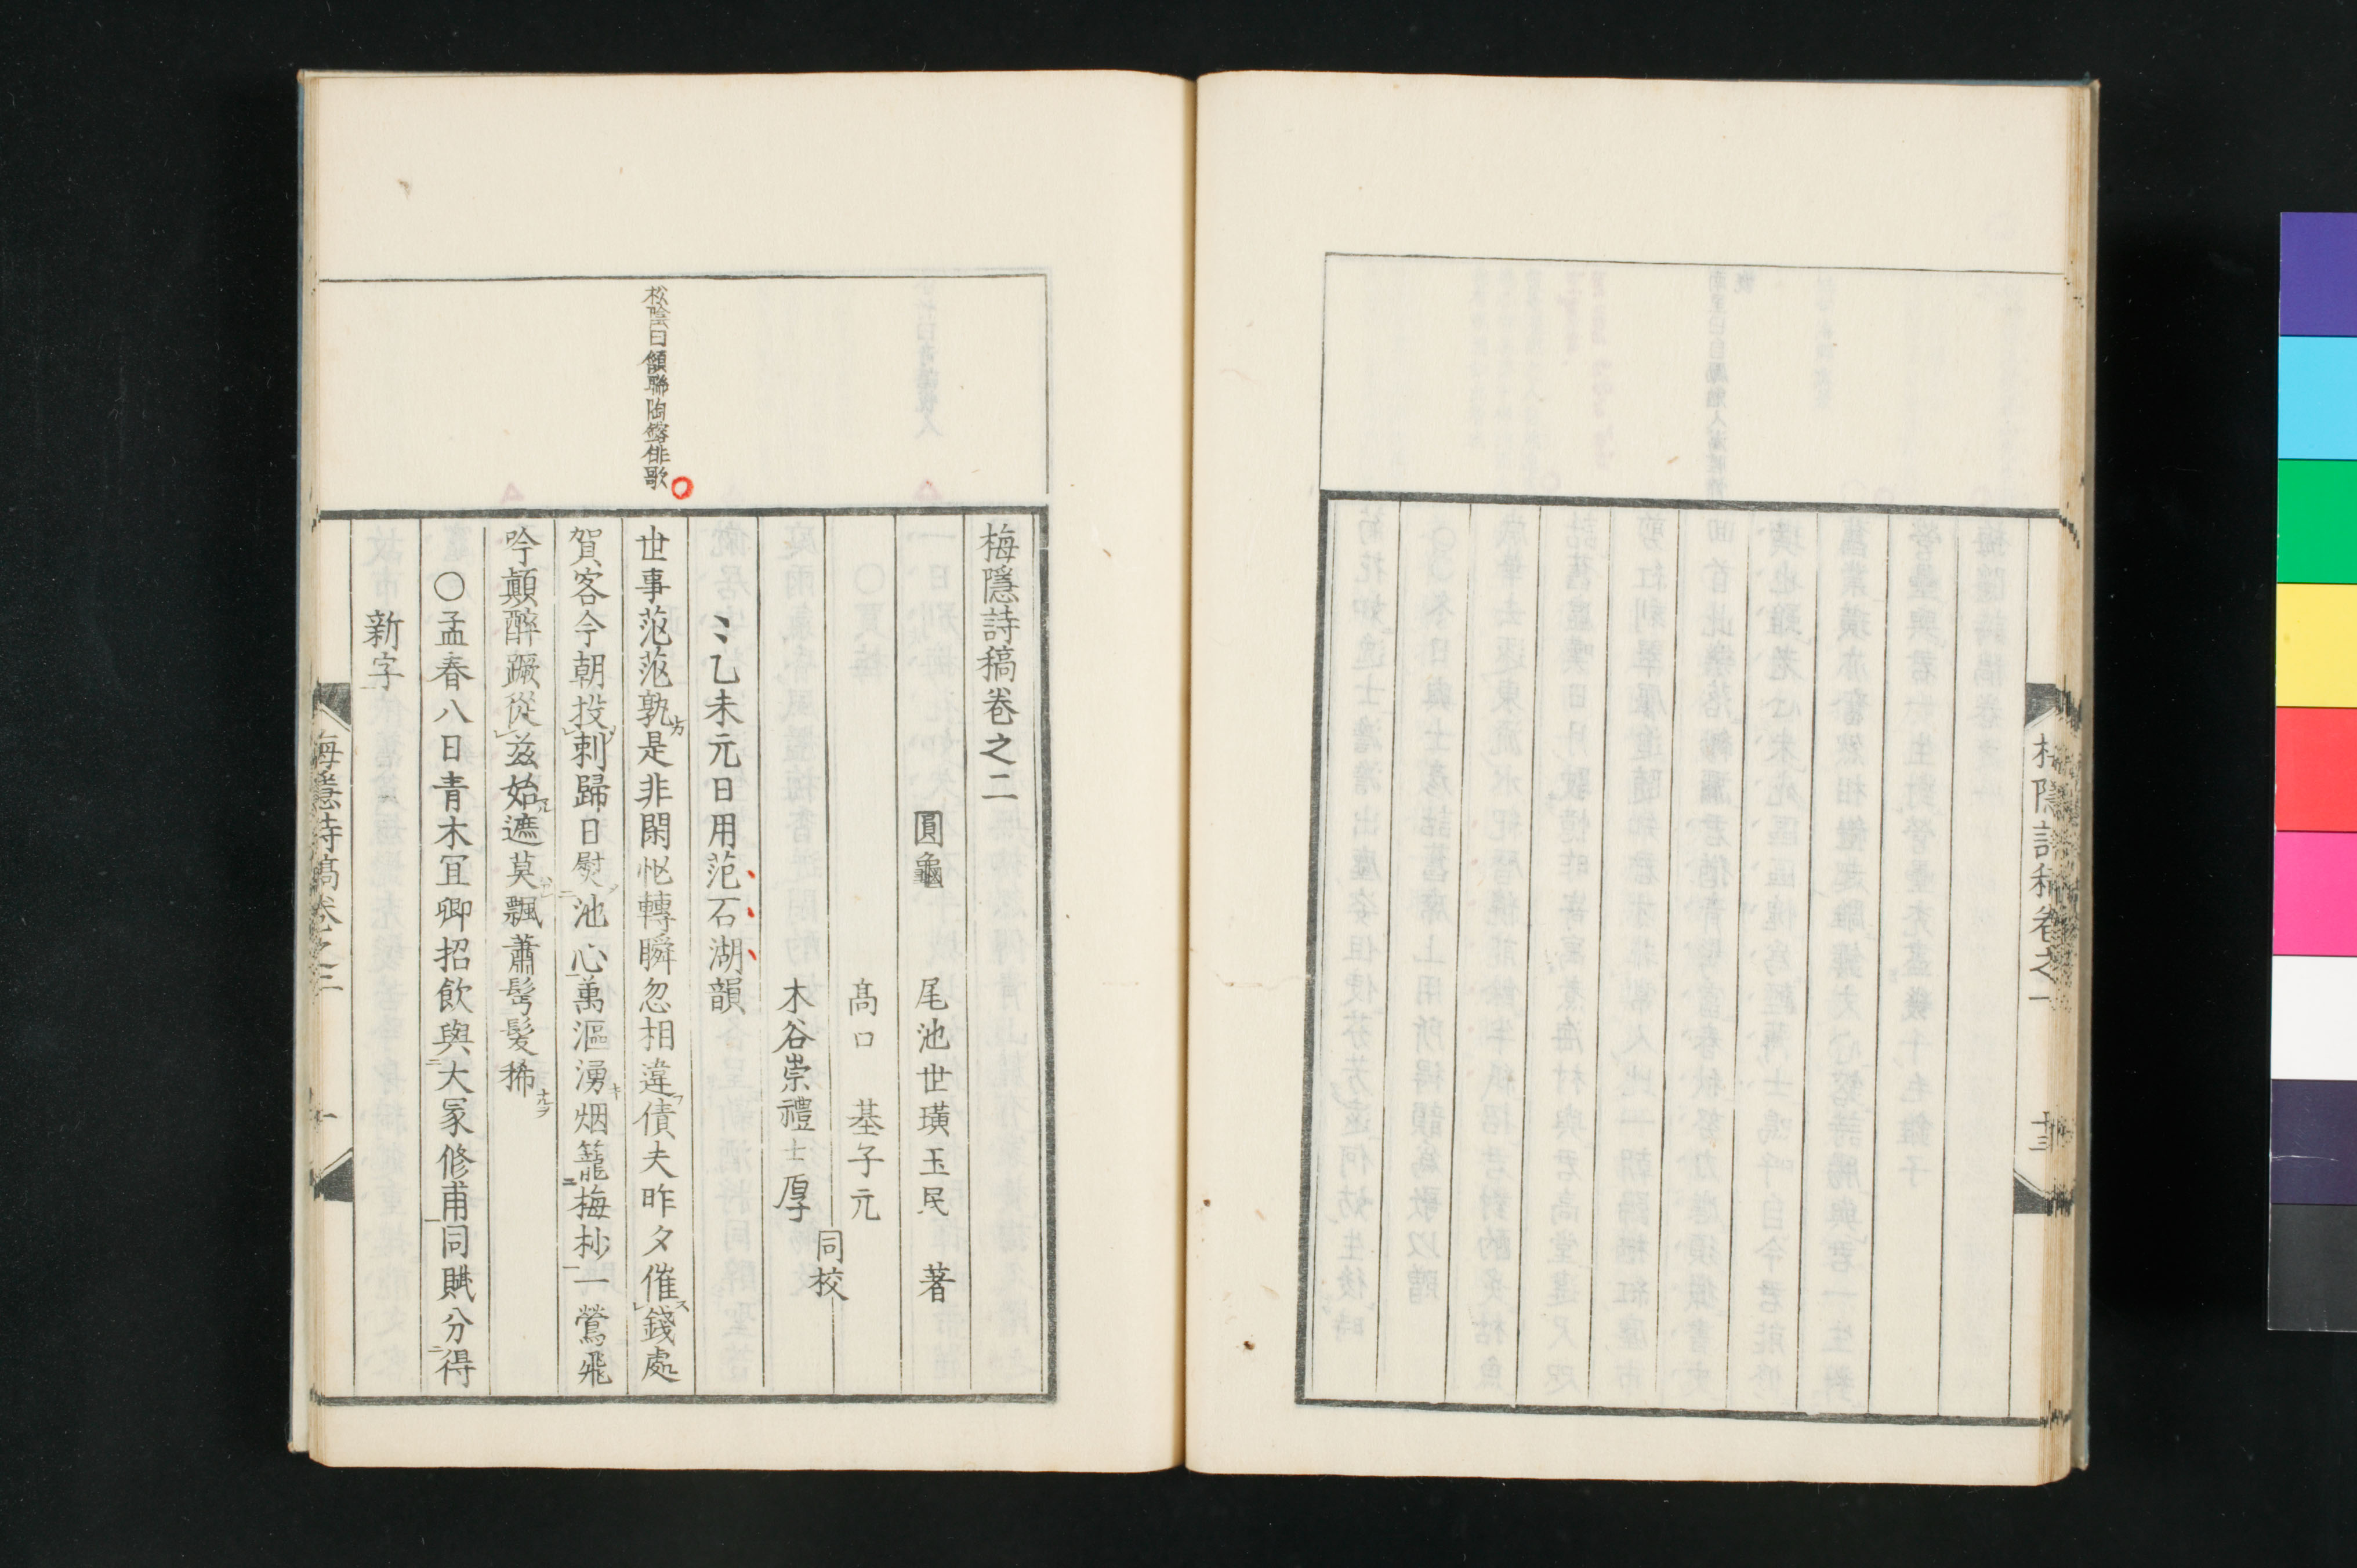 梅隱詩稿卷之一
十三
松陰曰頷聯陶鎔俳歌
梅隱詩稿卷之二
圓龜 尾池世璜玉民 著
髙口 基子元
木谷崇禮士厚
同校
乙未元日用范石湖韻
世事茫茫孰カ是非閑忙轉瞬忽相違フ債夫昨夕催ス錢處
賀客今朝投レ刺歸日熨ノ二池心一萬漚湧キ烟籠二梅杪一一鶯飛
吟顛醉蹶從レ玆始遮莫飄蕭鬂髮稀ナヲ
〇孟春八日青木冝卿招飲與二大冢修甫一同賦分二得
新字一
梅隱詩稿卷之二
一